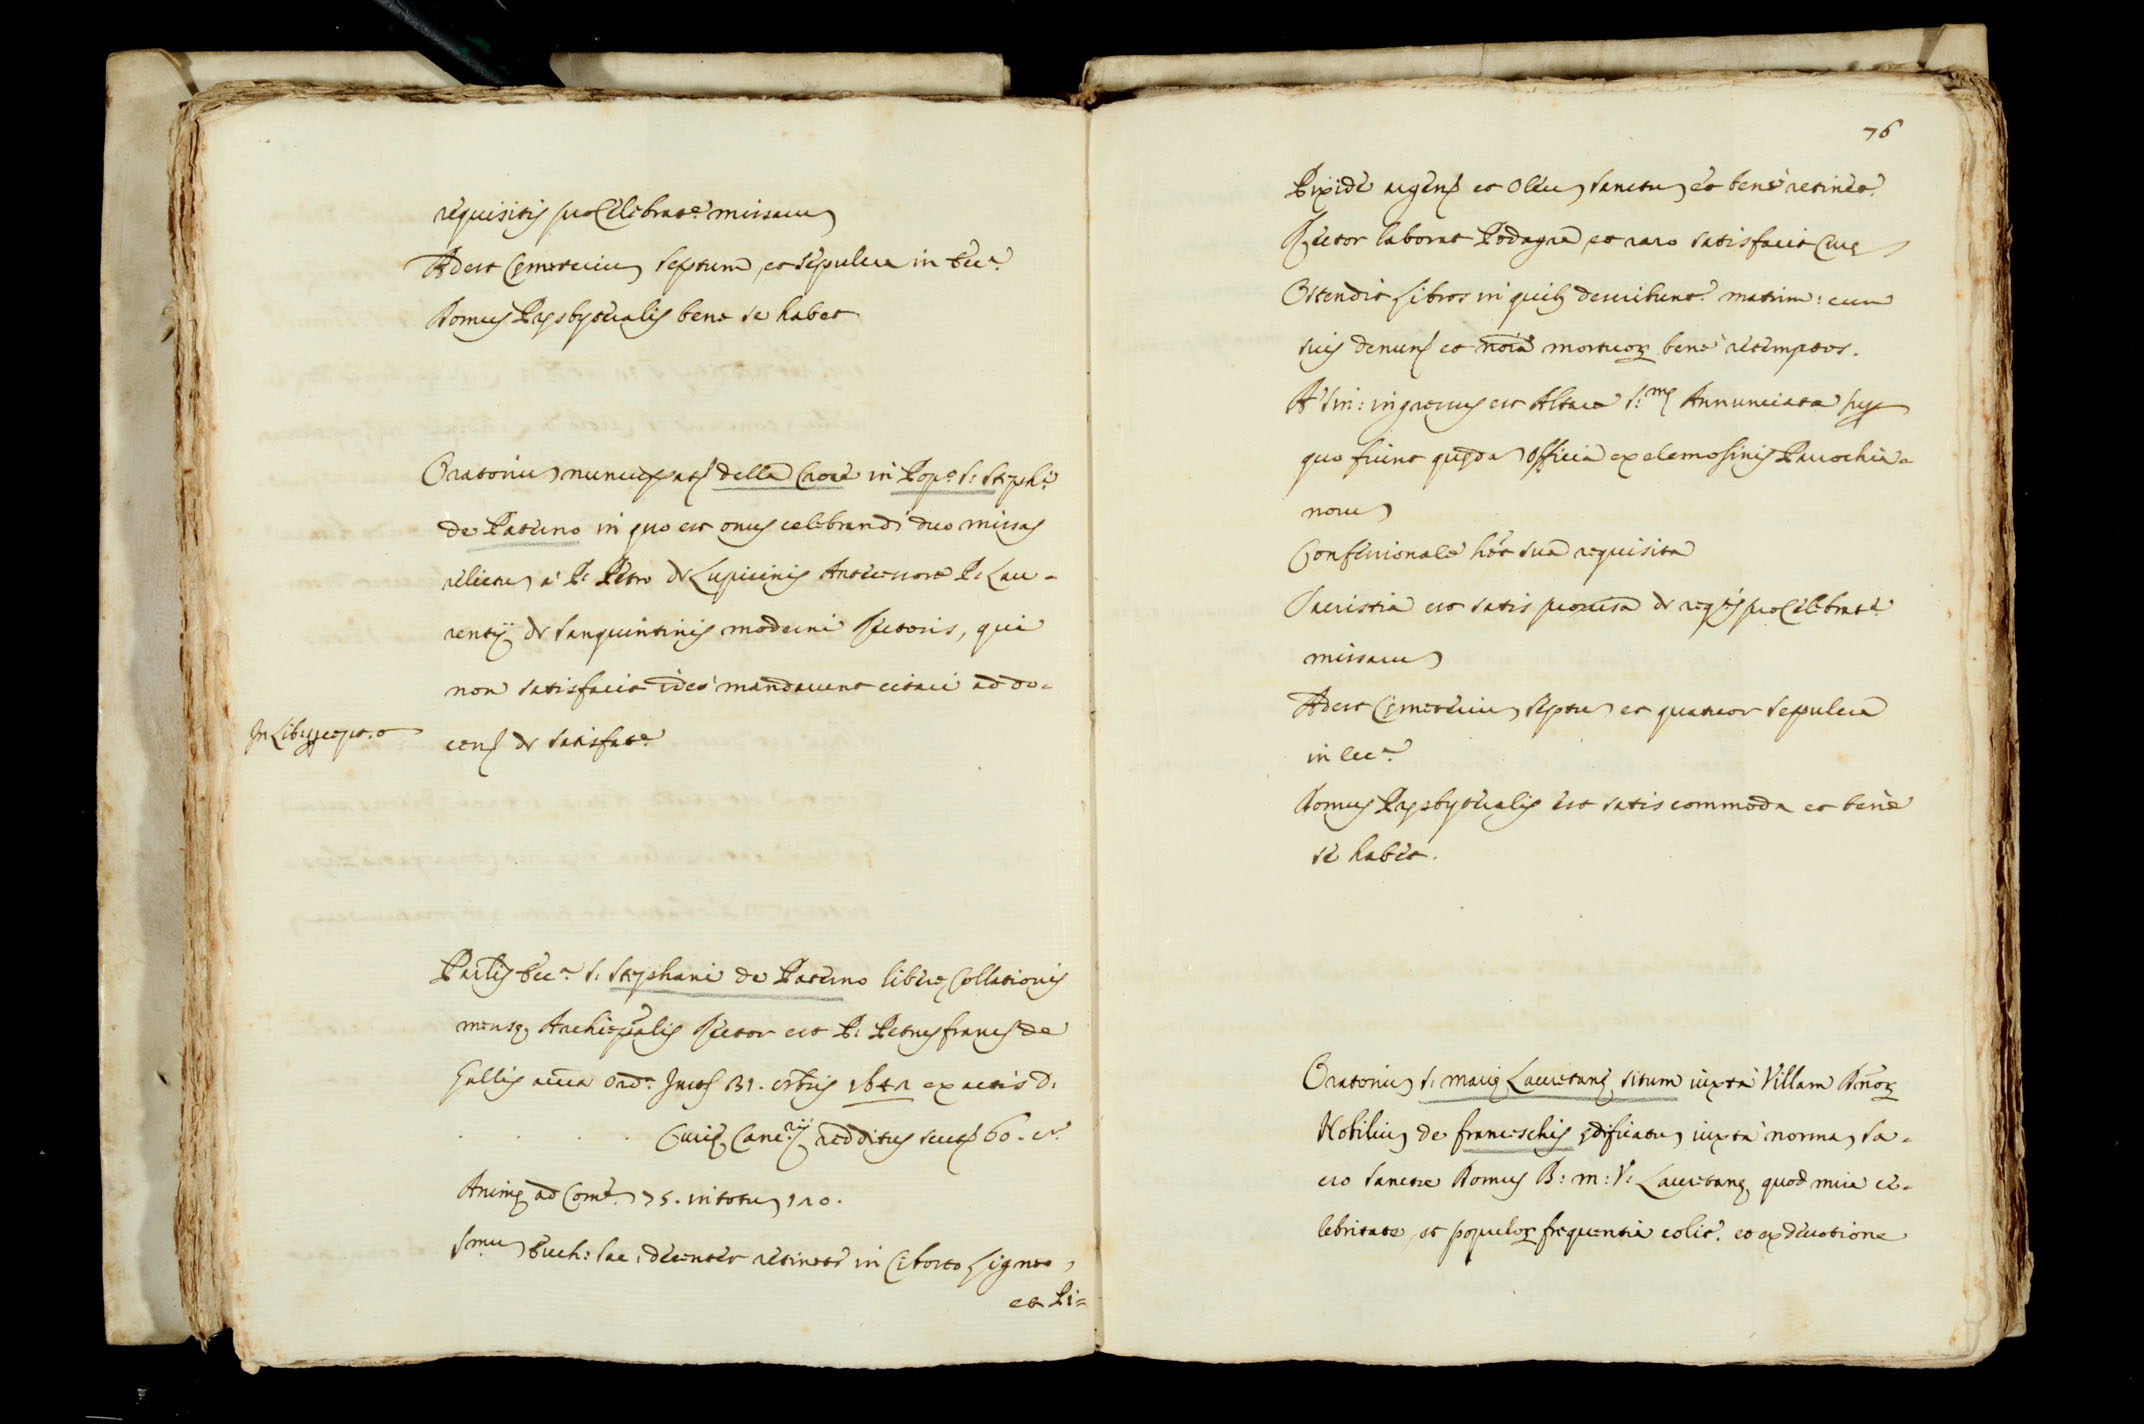 requisitis pro Celebrat.e missarum
Adest Cemeterium septum, et sepulcra in Ecc.a
Domus Presbyteralis bene se habet
Oratorium nuncupat. della Croce in Pop.o S. Steph.i
de Paterno in quo est onus celebrandi duo missas
relictum a P. Petro de Lupicinis Antecessore P. Lau-
rentij de Sanquintinis moderni Rectoris, qui
non satisfacit ideo mandarunt citari ad do-
In Lib:
cend. de satisfat.e
Par.lis Ecc.a S. Stephani de Paterno liberę Collationis
mensę Archiep.alis Rector est P. Petrus franc. de
Gallis auct.a ord.a 31. 1641 ex actis D.
Curię Canc.rij redditus scut. 60. cr.
Animę ad Com. 75. in totum 120.
S.mum Euch: Sac: decenter retinetr in Ciborio ligneo,
et Pi=
76
Pixide argent. et Oleum Sanctum et bene retinet.
Rector laborat Podagra, et raro satisfacit Curę
Ostendit libros in quib. describunt. matrim: cum
suis denunt. et noīa mortuoꝝ bene retemptos.
A sin: ingressus est Altare S.mę Annunciatæ supr
quo fiunt quędam officia ex elemosinis Parochia=
norum
Confessionale hēt sua requisita
Sacristia est satis provisa de req.tis pro Celebrat.e
missarum
Adest Cemeterium septum et quatuor sepulcra
in Ecc.a
Domus Presbyteralis est satis commoda et bene
se habet.
Oratorium S. Marię Lauretanę situm iuxta Villam D.noꝝ
Nobilium de franceschis ędificatum iuxta normam sa-
cro sanctæ Domus B: m: V: Lauretanę quod mira ce-
lebritate, et populoꝝ frequentia colit. et ex devotione